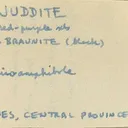 JUDDITE
red-purple xls
BRAUNITE (black)
inoamphibole
ES, CENTRAL PROVINCE